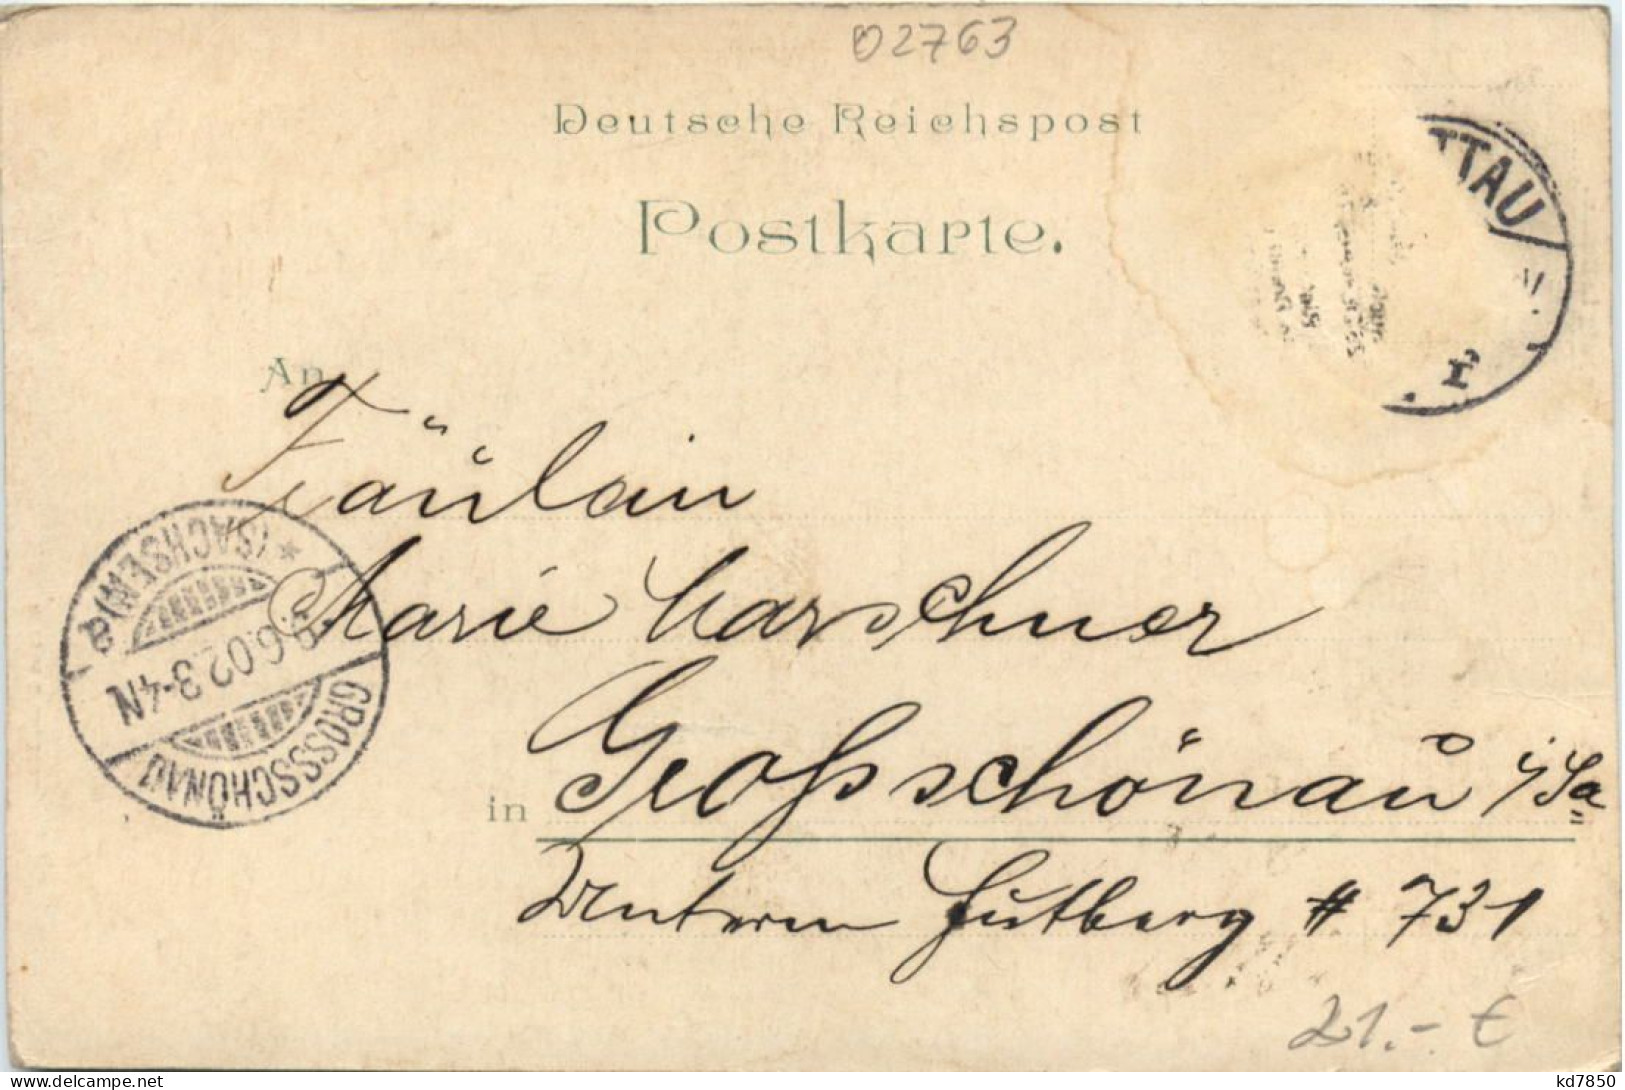 02763
Deutsche Reichspost
Postkarte.
TTAU
An
Fräulein
Marie Marschner
(SACHSEN) *
.6.02.3-4N
GROSSSCHÖNAU
in Großschönau i/Sa
Unterm Hutberg # 731
21.- €
kd7850